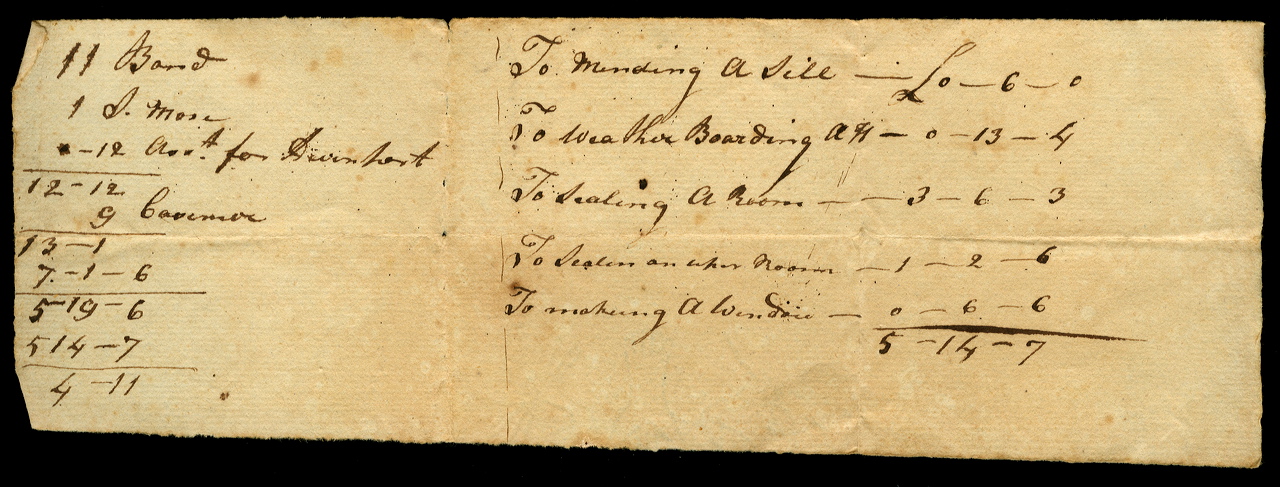 11 Band
1 S. More
- 12 Acct. for
12 - 12
9
13 - 1
7 - 1 - 6
5 - 19 - 6
5 14 - 7
4 - 11
To Mending A Sill — £0 - 6 - 0
To Weather Boarding A H — 0 - 13 - 4
To Sealing A Room — 3 - 6 - 3
To Sealin another Room — 1 - 2 - 6
To making A Window — 0 - 6 - 6
5 - 14 - 7